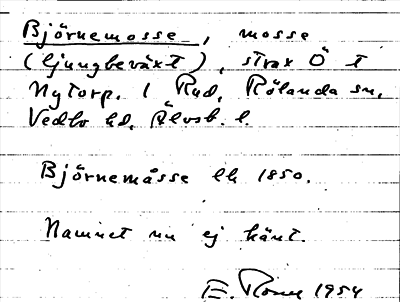 Björnemosse, mosse
(ljungbeväxt), strax Ö t
Nytorp. 1 Rud, Rölanda sn,
Vedbo hd, Älvsb. l.
Björnemåsse lk 1850.
Namnet nu ej känt.
E. 1954